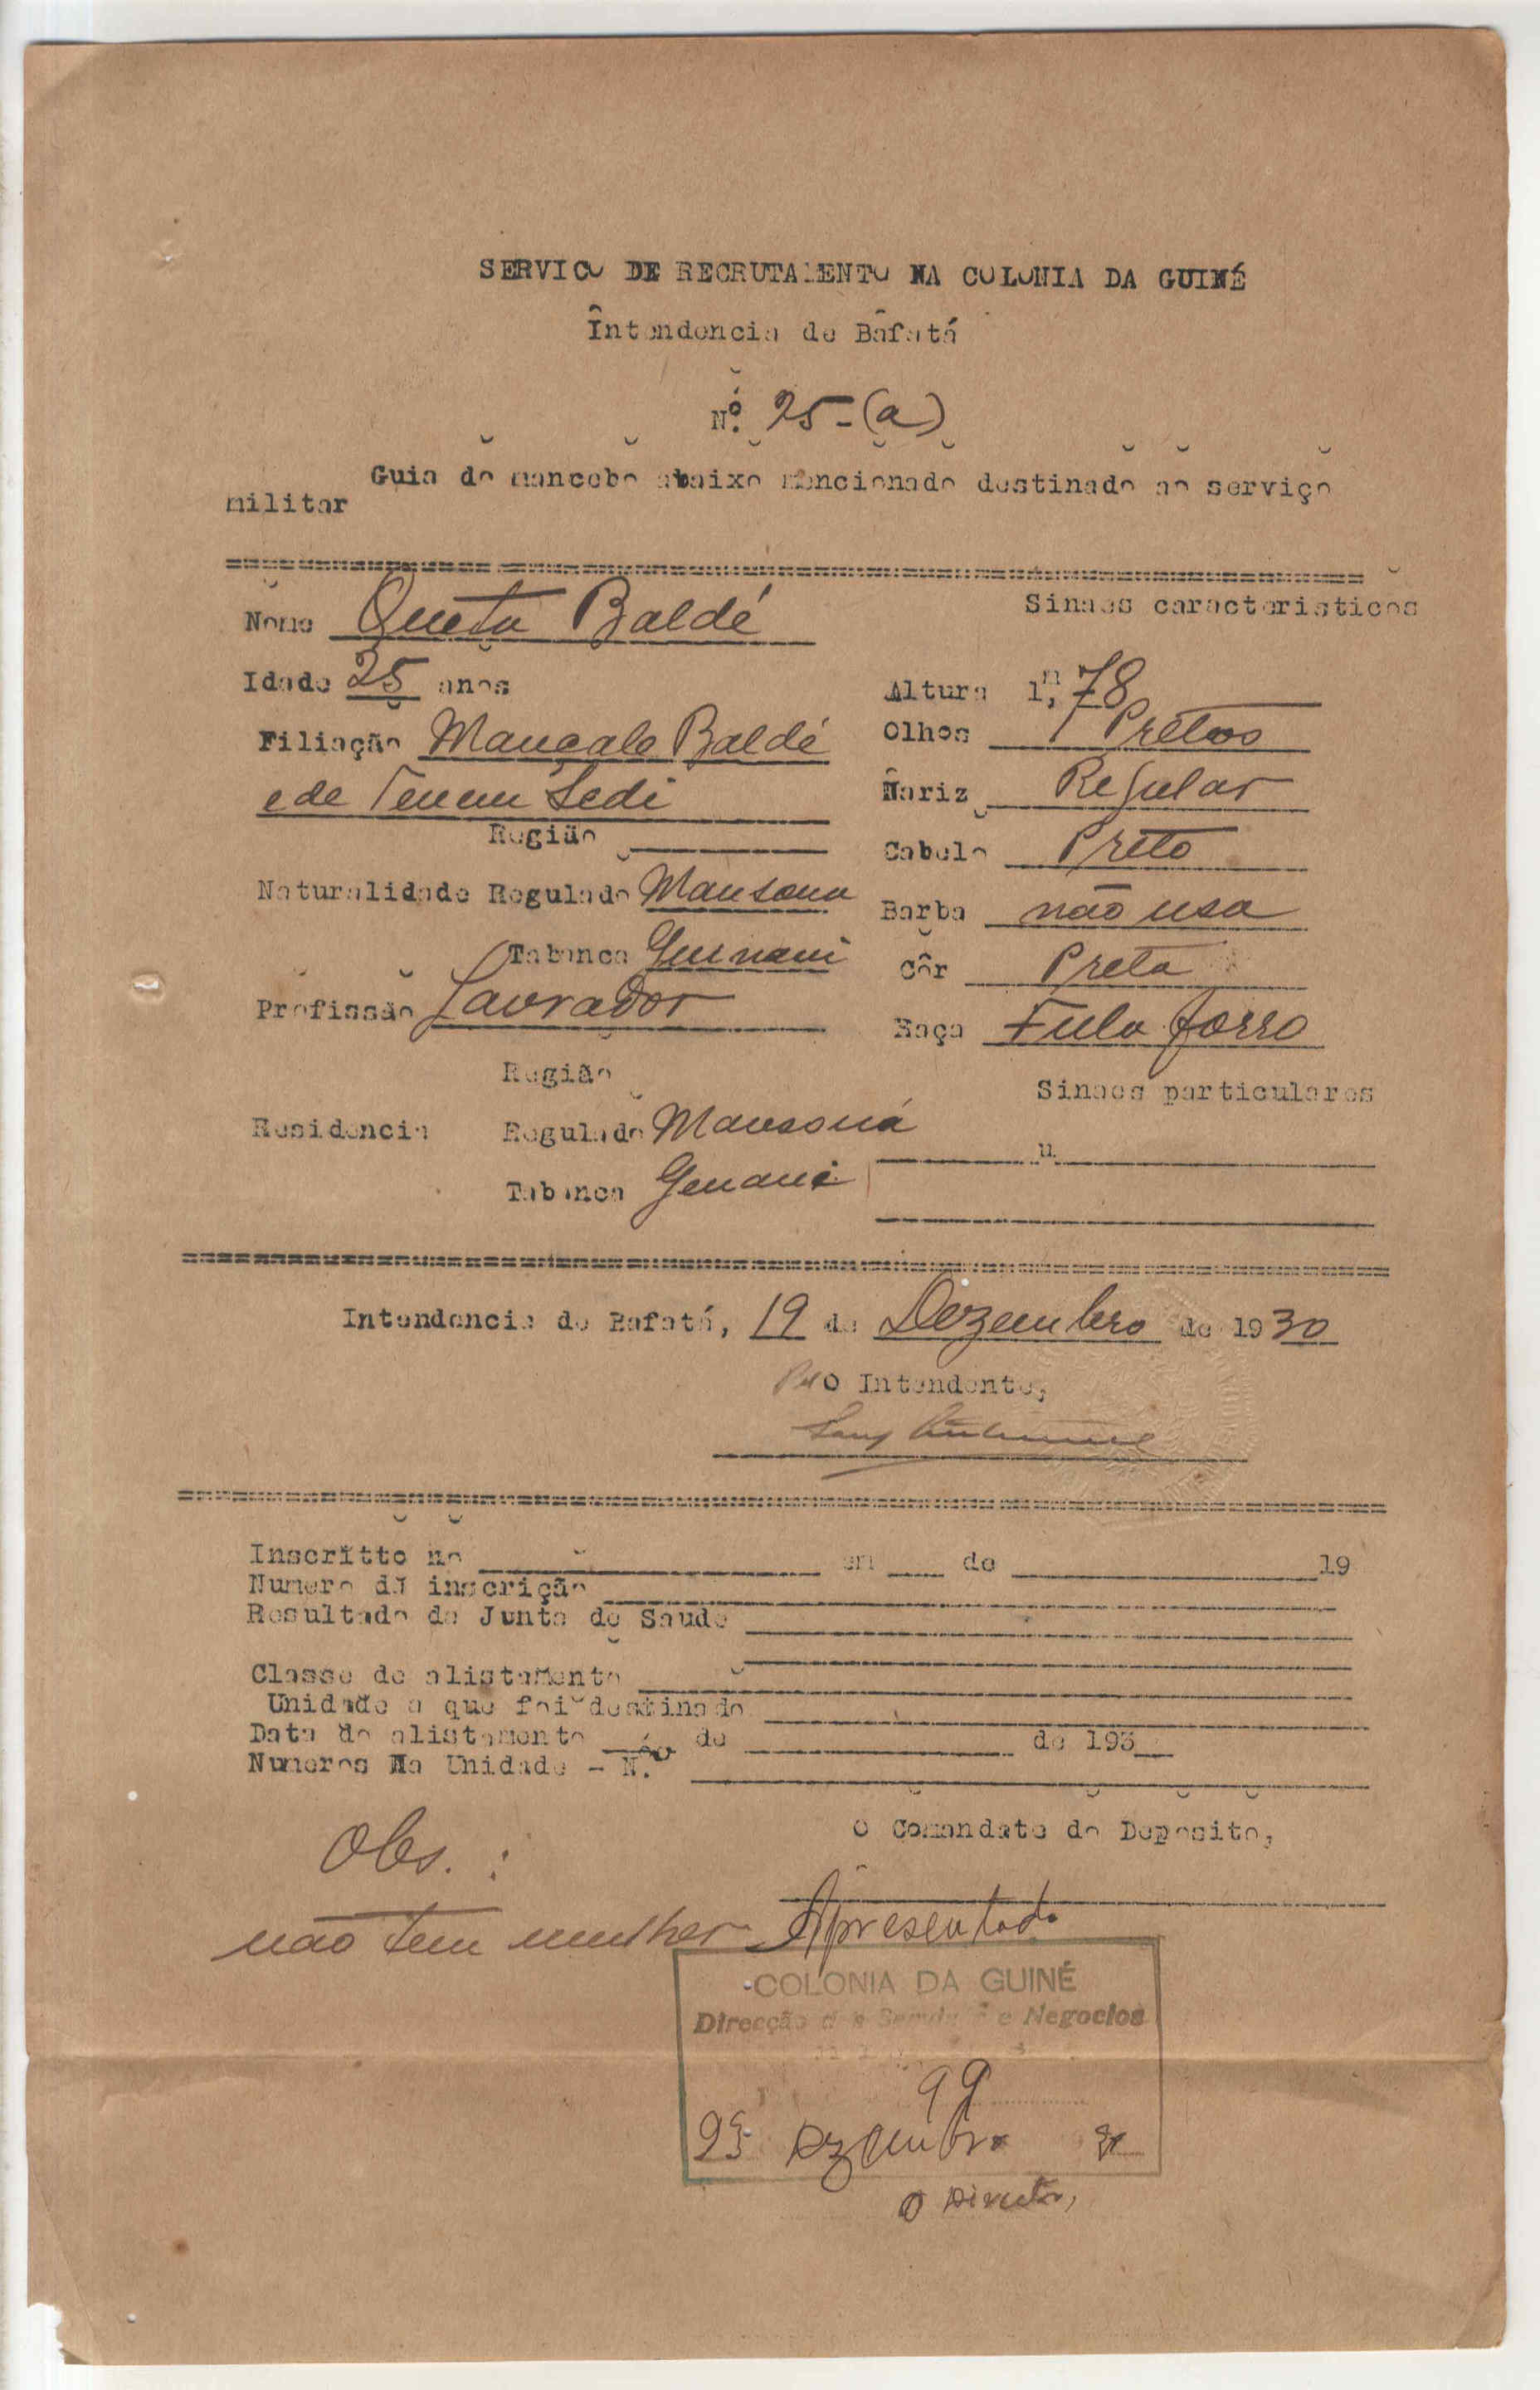 SERVICO DE RECRUTAMENTO NA COLONIA DA GUINÉ
Întendencia de Bâfatá
Nº. 25-(a)
Guia do mancebo abaixo mencionado destinado ao serviço
militar
Nome Queta Baldé
Sinaes caracteristicos
Idade 25 anos
Altura 1,m78
Filiação Mancalo Baldé
Olhos Pretos
e de Tenem Sedi
Nariz Regular
Região
Cabelo Preto
Naturalidade Regulado Mansona
Barba não usa
Tabanca
Côr Preta
Profissão Lavrador
Raça Fula forro
Região
Sinaes particulares
Residencia Regulado Mansoná
"
Tabanca
Intendencia de Bafatá, 19 de Dezembro de 1930
Pel O Intendente,
Inscritto no em de 19
Numero da inscrição
Resultado da Junta de Saude
Classe de alistamento
Unidade a que foi destinado
Data do alistamento de de 193
Numeros Na Unidade - N.º
O Comandate do Deposito,
Obs. :
não tem mulher Apresentado
COLONIA DA GUINÉ
Direcção dos Serviços e Negocios
99
23 Dezembro 30
O Director,